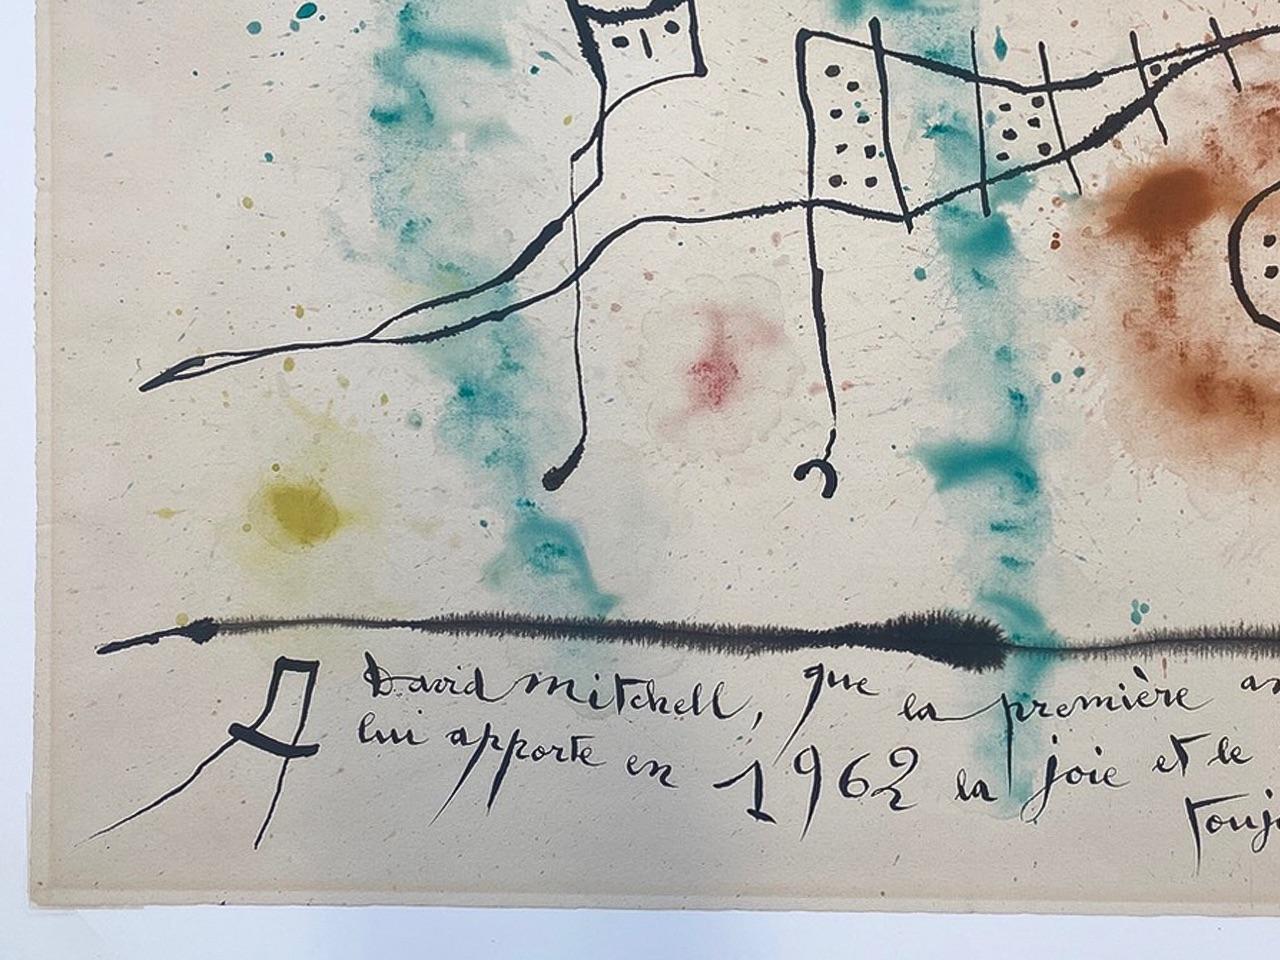 A David Mitchell, que la première an
lui apporte en 1962 la joie et le
touj